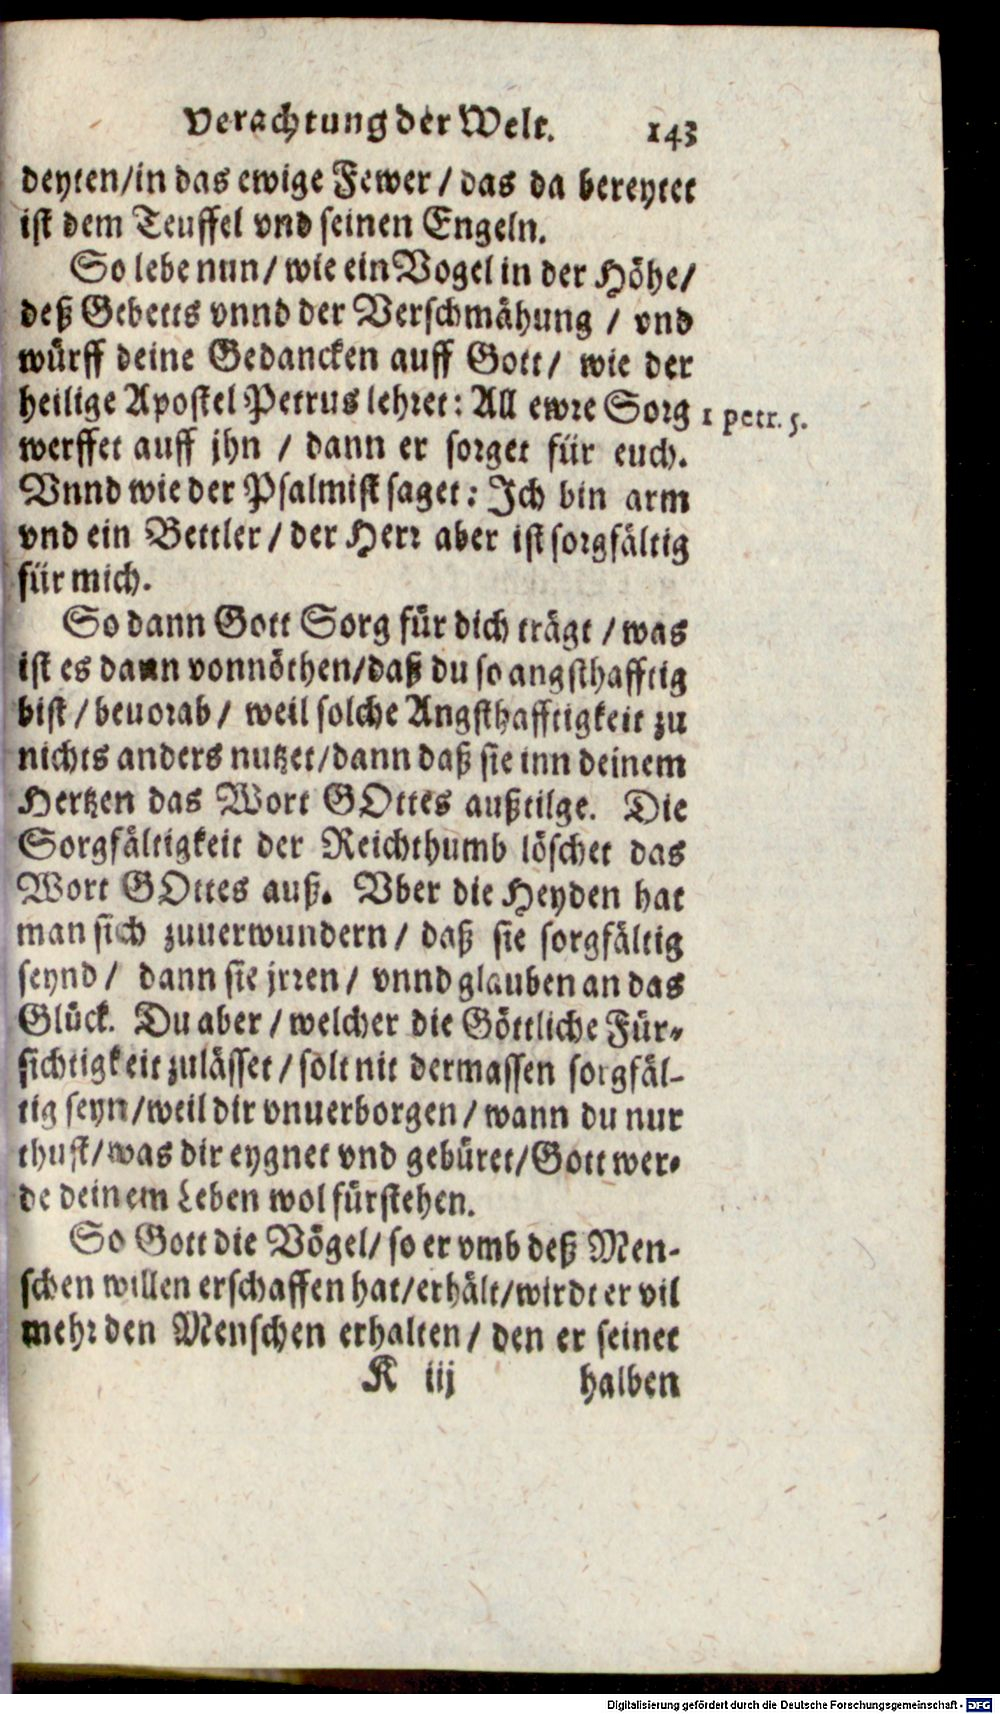 Verachtung der Welt. 143
deyten/in das ewige Fewer / das da bereytet
ist dem Teuffel vnd seinen Engeln.
So lebe nun/ wie ein Vogel in der Höhe/
deß Gebetts vnnd der Verschmähung / vnd
würff deine Gedancken auff Gott/ wie der
heilige Apostel Petrus lehret: All ewre Sorg
1 petr. 5.
werffet auff jhn / dann er sorget für euch.
Vnnd wie der Psalmist saget: Jch bin arm
vnd ein Bettler/ der Herr aber ist sorgfältig
für mich.
So dann Gott Sorg für dich trägt / was
ist es dann vonnöthen/daß du so angsthafftig
bist / beuorab/ weil solche Angsthafftigkeit zu
nichts anders nutzet/dann daß sie inn deinem
Hertzen das Wort GOttes außtilge. Die
Sorgfältigkeit der Reichthumb löschet das
Wort GOttes auß. Vber die Heyden hat
man sich zuuerwundern/ daß sie sorgfältig
seynd/ dann sie jrren/ vnnd glauben an das
Glück. Du aber / welcher die Göttliche Für-
sichtigkeit zulässet/ solt nit dermassen sorgfäl-
tig seyn/weil dir vnuerborgen/ wann du nur
thust/was dir eygnet vnd gebüret/Gott wer-
de deinem Leben wol fürstehen.
So Gott die Vögel/ so er vmb deß Men-
schen willen erschaffen hat/erhält/wirdt er vil
mehr den Menschen erhalten/ den er seinet
K iij halben
Digitalisierung gefördert durch die Deutsche Forschungsgemeinschaft - DFG